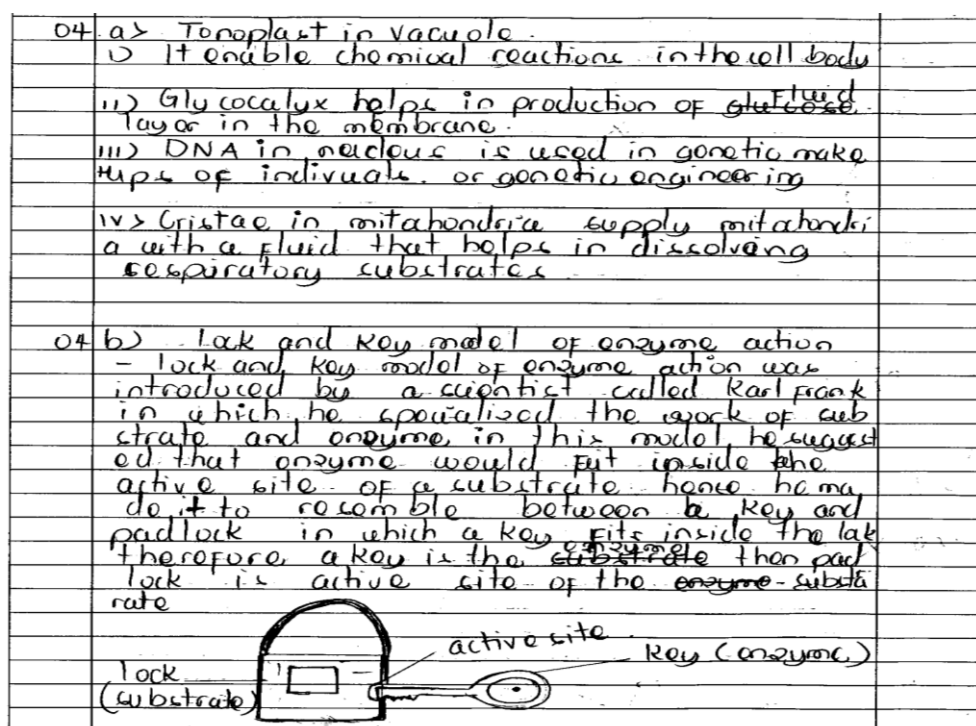 04 a> Tonoplast in vacuole.
i) It enable chemical reactions in the cell body
ii) Glycocalyx helps in production of Fluid
layer in the membrane.
iii) DNA in neicleus is used in genetic make
ups of indivuals. or genetic engineering
iv> Cristae in mitahondria supply mitahondri
a with a fluid that helps in dissolving
respiratory substrates
04 b) Lock and Key model of enzyme action
- lock and key model of enzyme action was
introduced by a scientist called Karl Frank
in which he specialized the work of sub
strate and enzyme, in this model, he suggest
ed that enzyme would fit inside the
active site of a substrate hence he ma
de it to resemble between a key and
padlock in which a key fits inside the lok
therefore, a key is the enzyme then pad
lock is active site of the substa
rate
active site
Key (enzyme)
lock
(substrate)